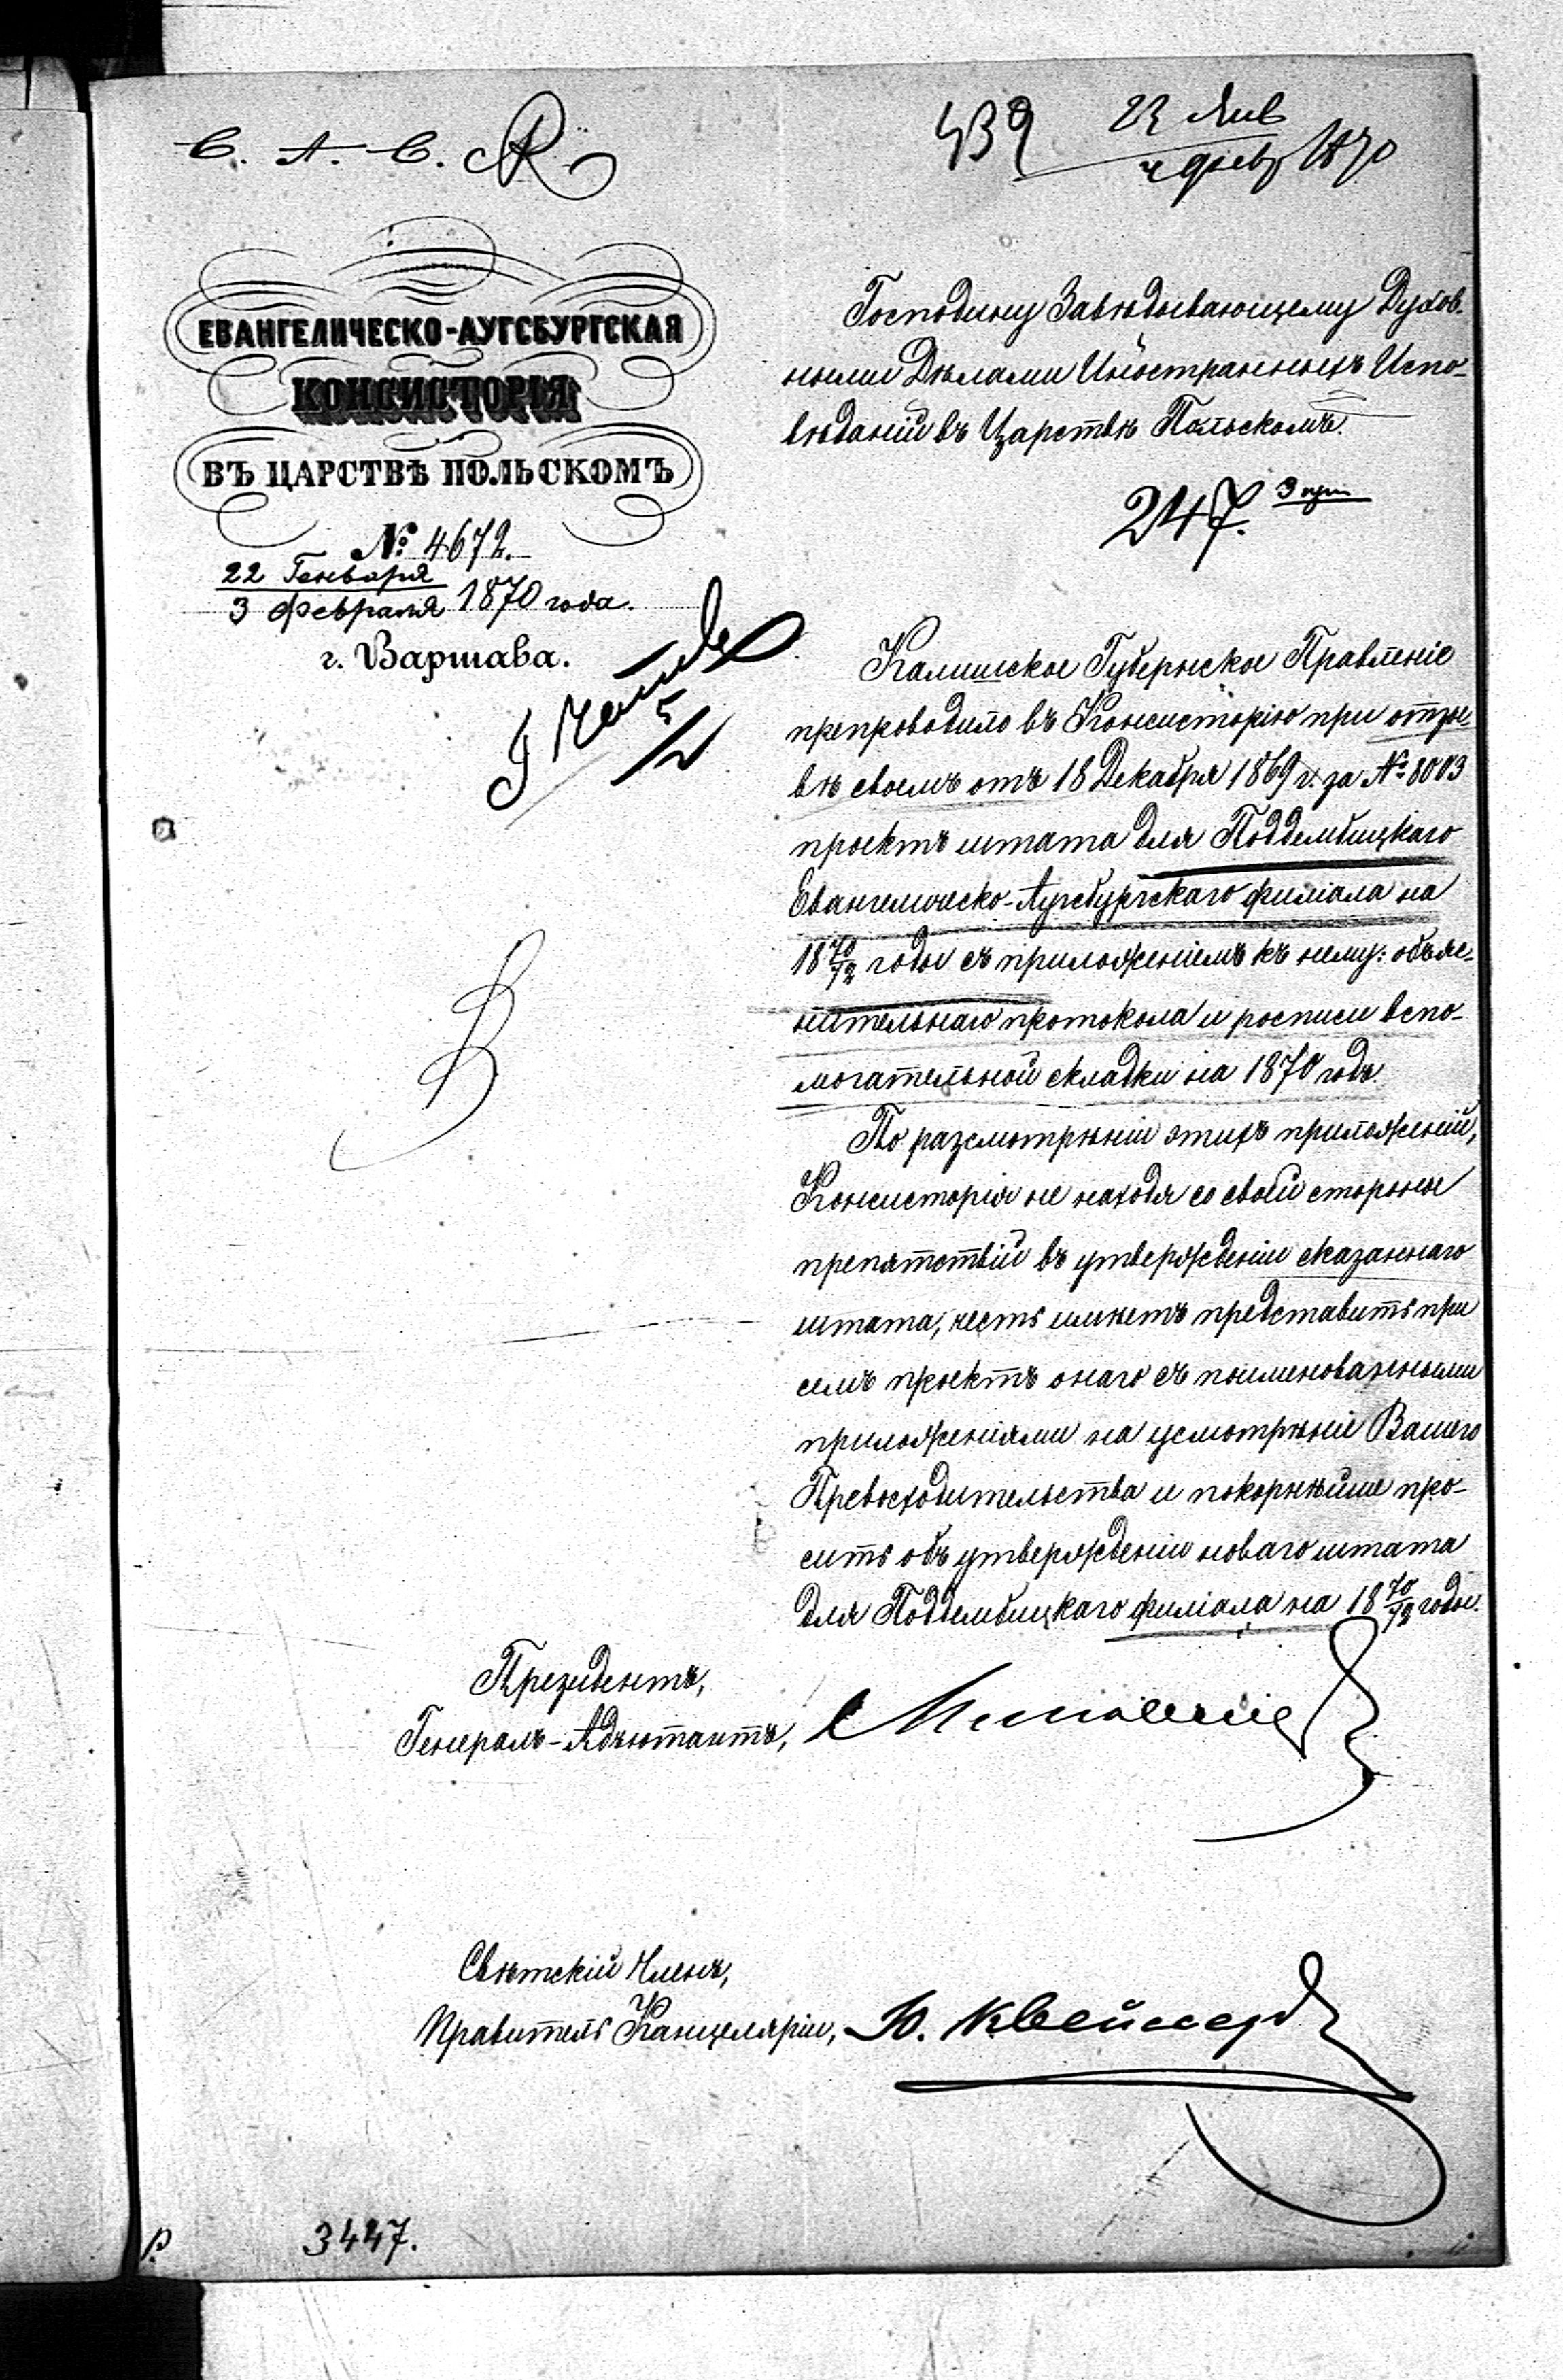 С. А. С.
439 23 Янв
4 февр 1870
ЕВАНГЕЛИЧЕСКО-АУГСБУРГСКАЯ
КОНСИСТОРІЯ
ВЪ ЦАРСТВѢ ПОЛЬСКОМЪ
№ 4672.
22 Генваря
3 Февраля 1870 года.
г. Варшава.
Господину Завѣдывающему Духов-
ными Дѣлами Иностранныхъ Испо-
вѣданій въ Царствѣ Польскомъ.
247.
5
Калишское Губернское Правленіе
препроводило въ Консисторію при отзы-
вѣ своемъ отъ 18 Декабря 1869 г. за № 8003
проектъ штата для Поддембицкаго
Евангелическо-Аугсбургскаго филіала на
18 70/72 годы съ приложеніемъ къ нему: объяс-
нительнаго протокола и росписи вспо-
могательной складки на 1870 годъ.
По разсмотрѣніи этихъ приложеній,
Консисторія не находя со своей стороны
препятствій въ утвержденіи сказаннаго
штата, честь имѣетъ представить при
семъ проектъ онаго съ поименованными
приложеніями на усмотрѣніе Вашего
Превосходительства и покорнѣйше про-
сить объ утвержденіи новаго штата
для Поддембицкаго филіала на 18 70/72 годы.
Президентъ,
Генералъ-Адъютантъ,
Свѣтскій Членъ,
Правитель Канцеляріи, Ю. Квейссеръ
3447.